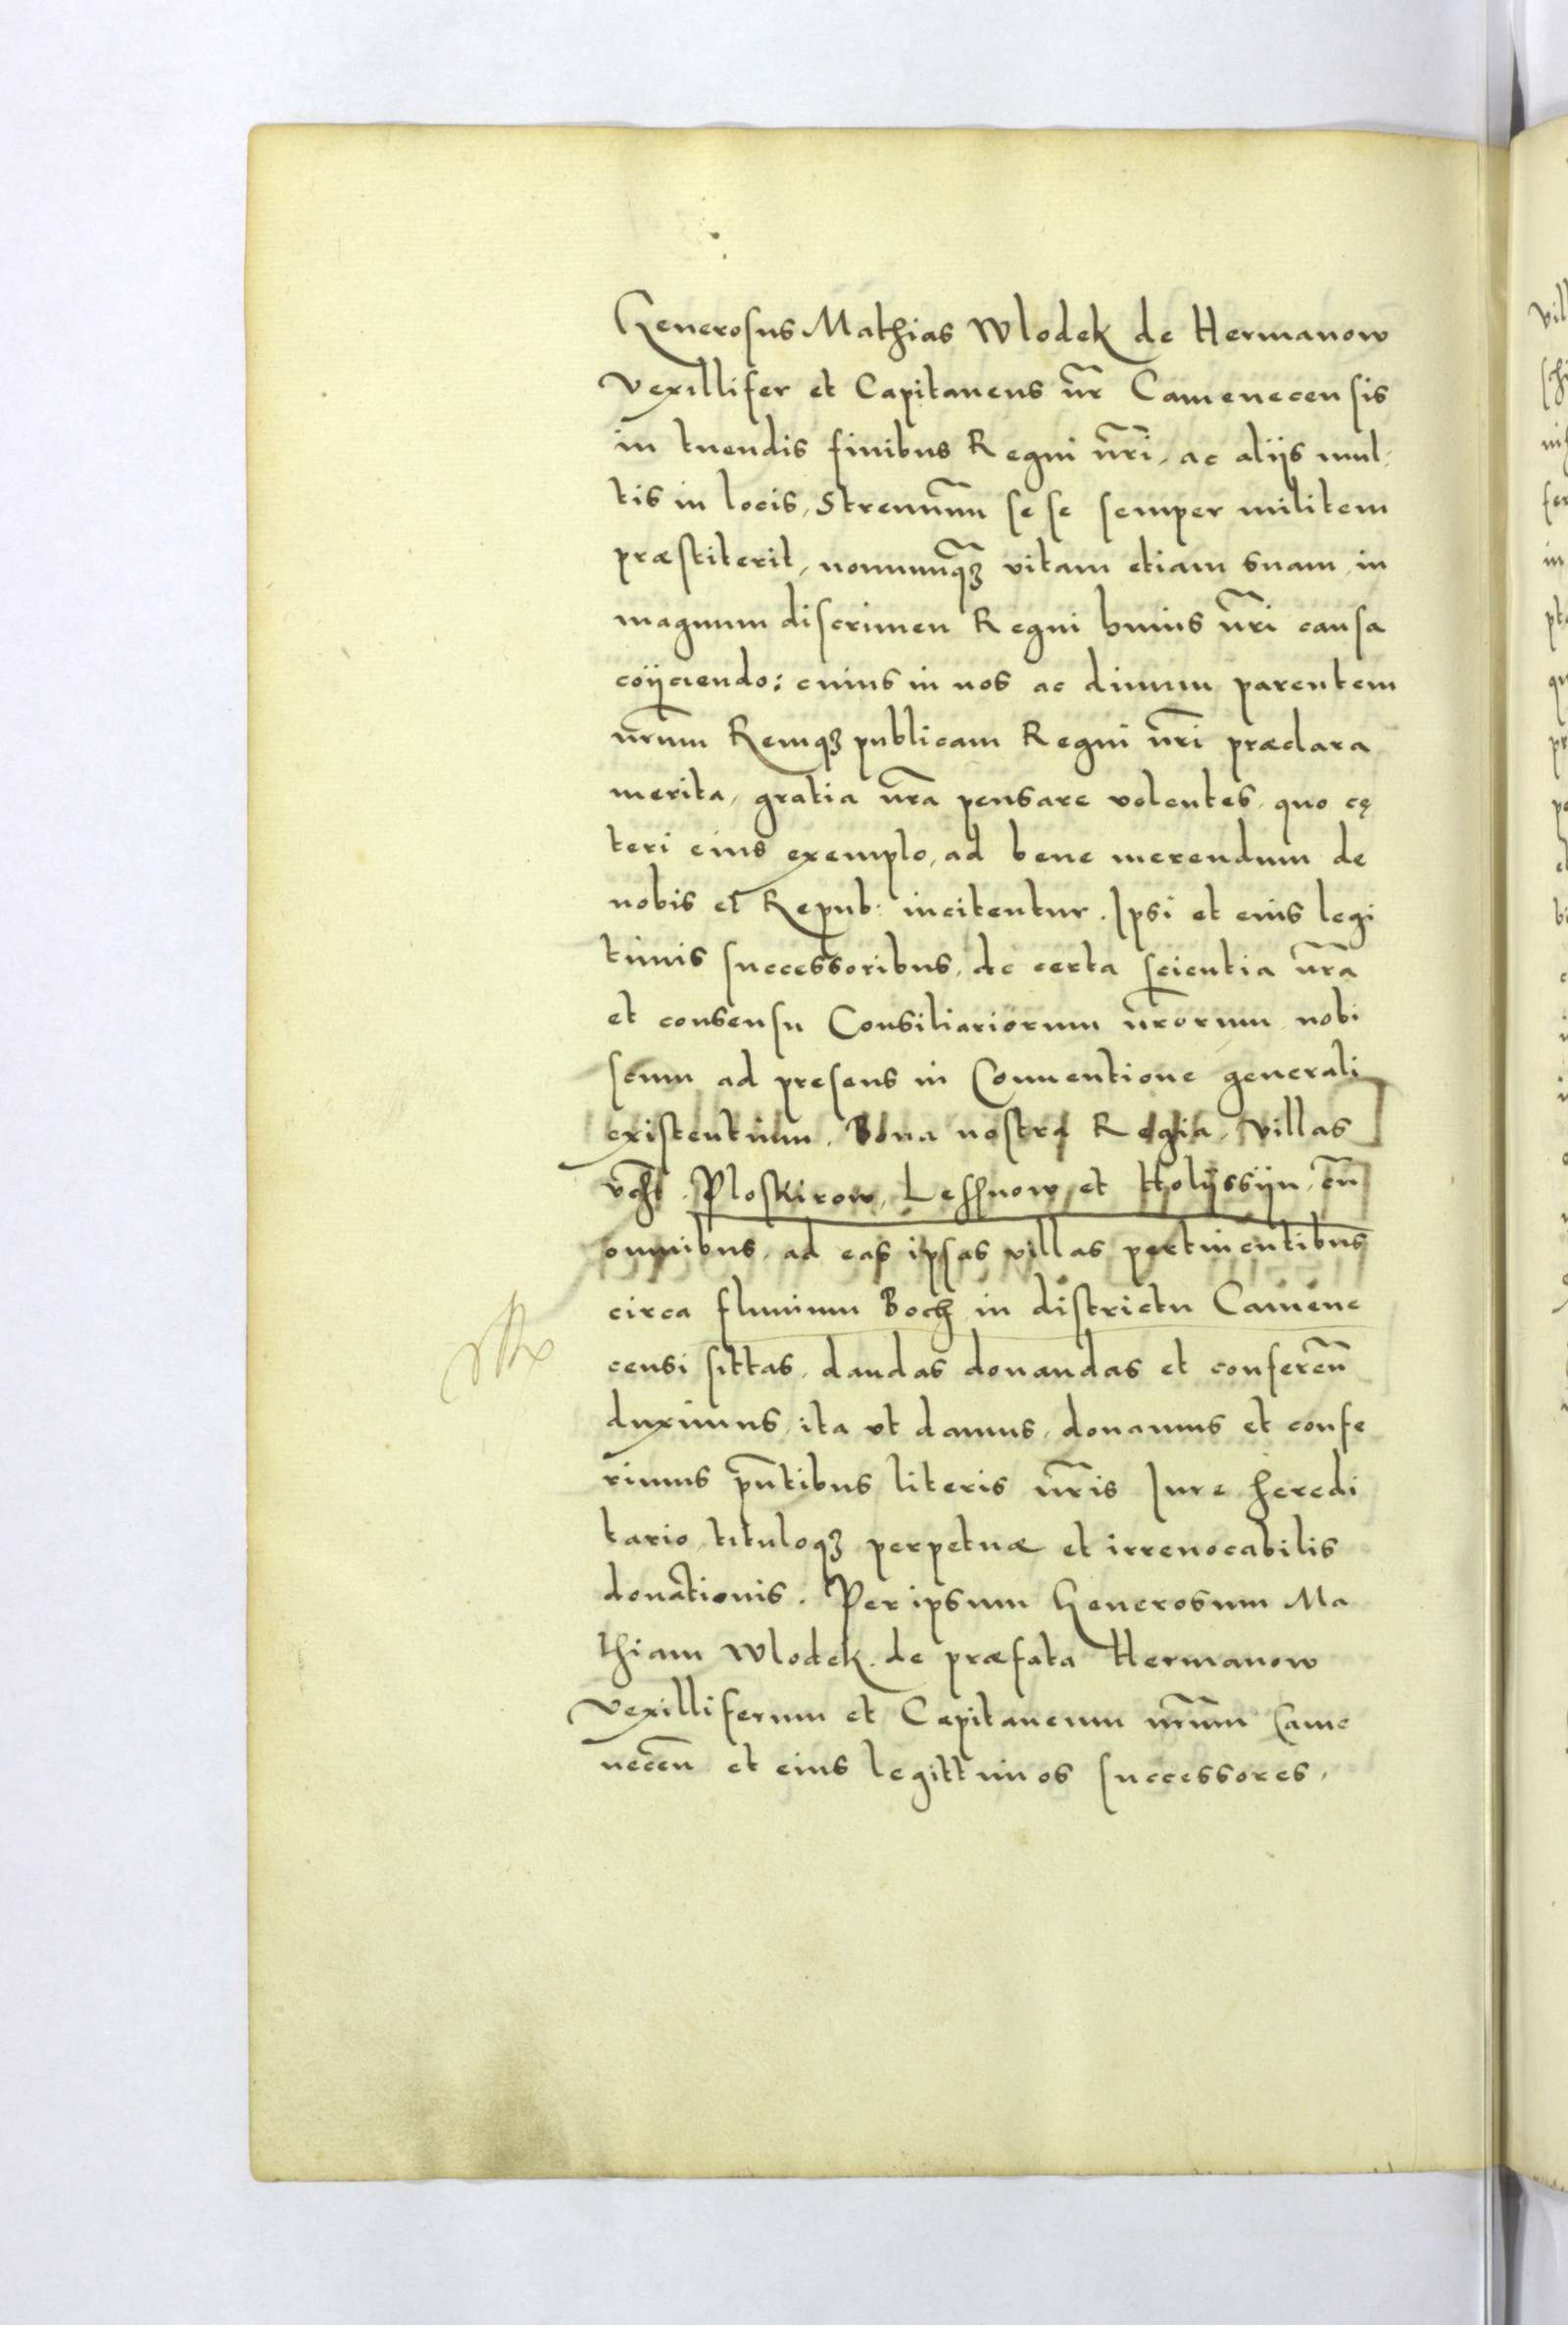 Generosus Mathias Wlodek de Hermanow
Vexillifer et Capitaneus nr̃ Camenecensis
in tuendis finibus Regni nr̃i, ac alijs mul-
tis in locis, Strenuũm se se semper militem
præstiterit, nonnunq̃ꝫ vitam etiam suam in
magnum discrimen Regni huius nr̃i causa
coijciendo: cuius in nos ac diuum parentem
nr̃um Remqꝫ publicam Regni nr̃i præclara
merita, gratia nr̃a pensare volentes, quo cę
teri eius exemplo, ad bene merendum de
nobis et Repub: incitentur. Ipsi et eius legi
timis successoribus, de certa scientia nr̃a
et consensu Consiliariorum nr̃orum nobi
scum ad presens in Conuentione generali
existentium. Bona nostra Regia, villas
vc̃ht. Ploskirow, Lessnow et Holijssijn, cũ
omnibus, ad eas ipsas villas pertinentibus
circa fluuium Boch in districtu Camene
censi sittas, dandas donandas et conferen̄
duximus, ita vt damus, donamus et confe
rimus pñtibus literis nr̃is Iure heredi
tario, tituloqꝫ perpetuæ et irreuocabilis
donationis. Per ipsum Generosum Ma
thiam Wlodek de præfata Hermanow
Vexilliferum et Capitaneum nr̃um Came
necen̄ et eius legittimos successores,